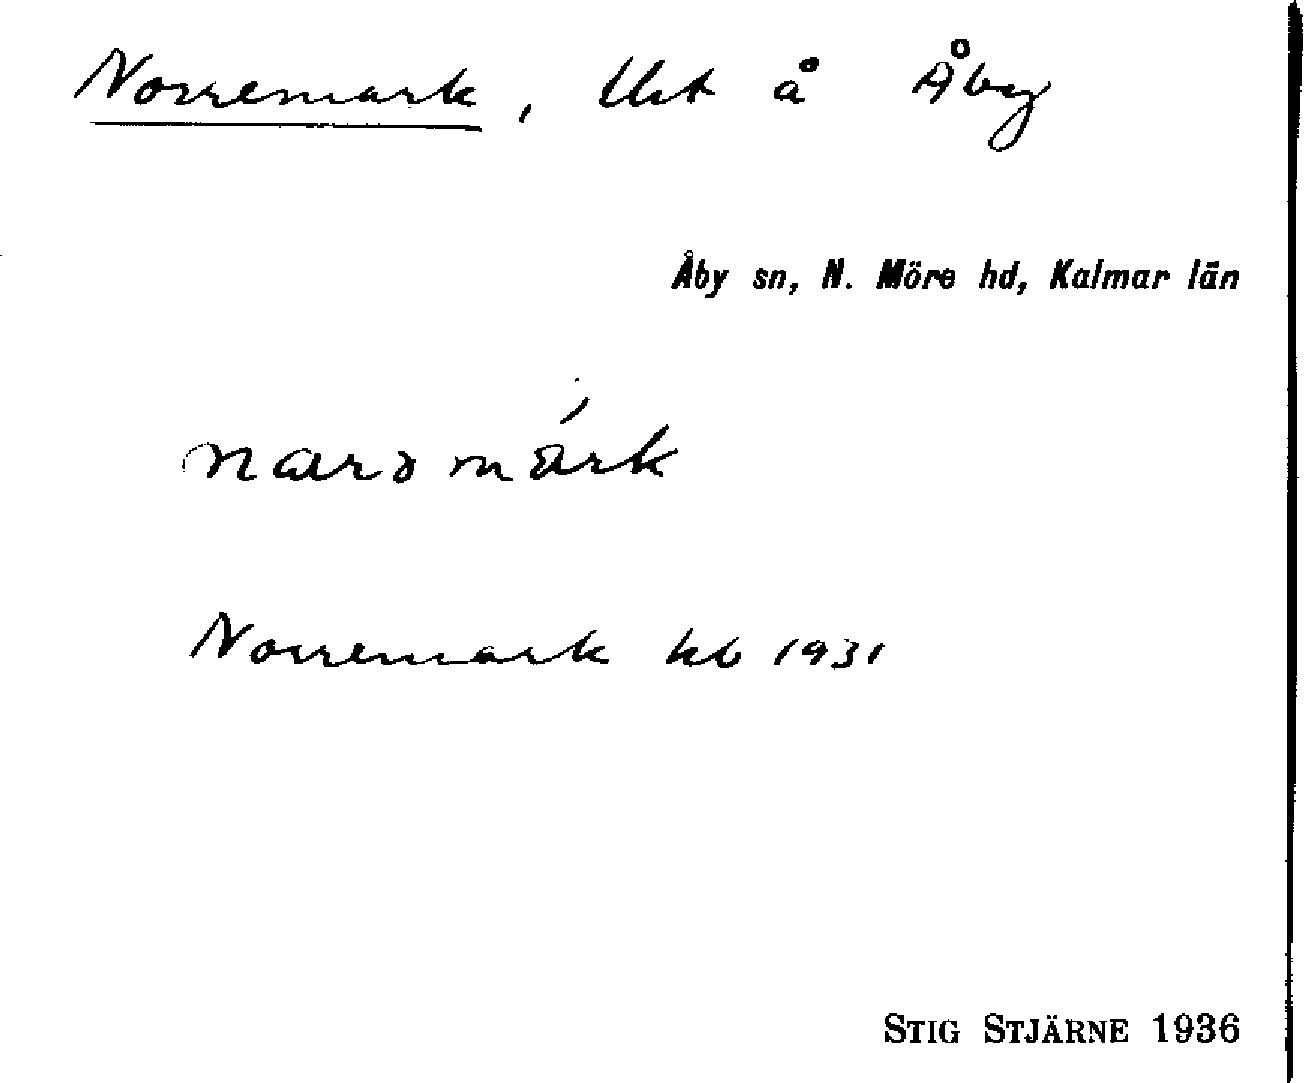 Norremark, Uet å Åby
Åby sn, N. Möre hd, Kalmar län
Norremark kb 1931
STIG STJÄRNE 1936